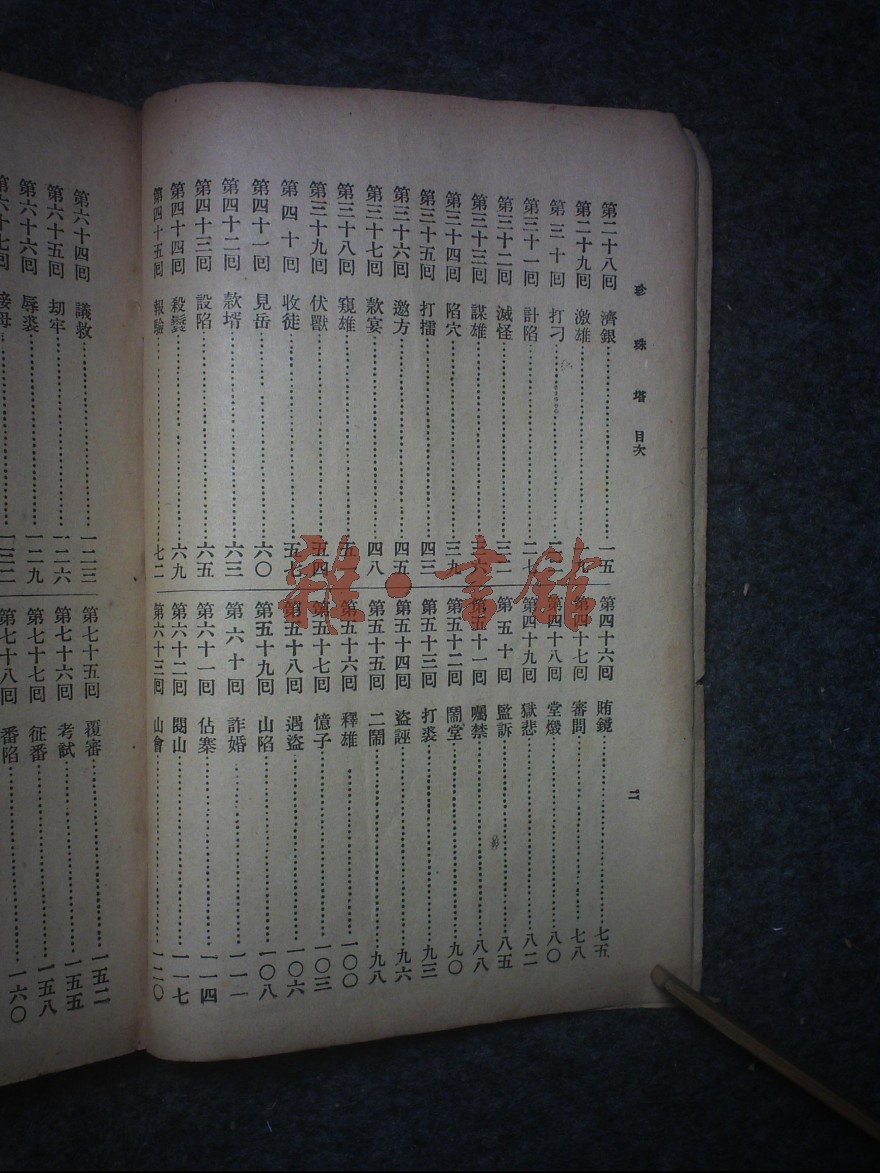 珍珠塔 目次
二
第二十八回 濟銀……一五
第二十九回 激雄……九
第三十回 打刁
第三十一回 計陷……二七
第三十二回 滅怪……三二
第三十三回 謀雄……三六
第三十四回 陷穴……三九
第三十五回 打擂……四三
第三十六回 邀方……四五
第三十七回 款宴……四八
第三十八回 窺雄……五
第三十九回 伏獸……五四
第四十回 收徒……五七
第四十一回 見岳……六〇
第四十二回 款壻……六三
第四十三回 設陷……六五
第四十四回 殺鬟……六九
第四十五回 報驗……七二
第四十六回 賄鏡……七五
第四十七回 審問……七八
第四十八回 堂燬……八〇
第四十九回 獄悲……八二
第五十回 監訴……八五
第五十一回 囑禁……八八
第五十二回 鬧堂……九〇
第五十三回 打裘……九三
第五十四回 盜誣……九六
第五十五回 二鬧……九八
第五十六回 釋雄……一〇〇
第五十七回 憶子……一〇三
第五十八回 遇盜……一〇六
第五十九回 山陷……一〇八
第六十回 詐婚……一一一
第六十一回 佔寨……一一四
第六十二回 閱山……一一七
第六十三回 山會……一二〇
第六十四回 議救……一二三
第六十五回 刧牢……一二六
第六十六回 辱裘……一二九
第六十七回 接母……一三二
第七十五回 覆審……一五二
第七十六回 考試……一五五
第七十七回 征番……一五八
第七十八回 番陷……一六〇
雜·書館